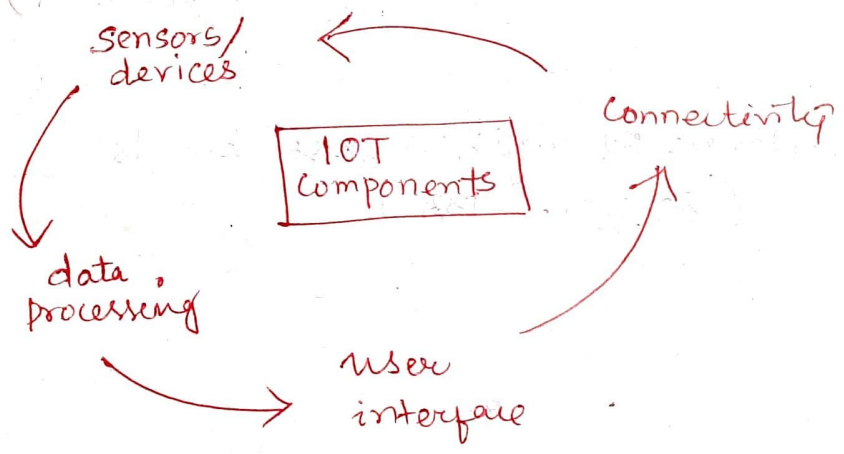 sensors/
devices
connectivity
IOT
components
data
processing
user
interface